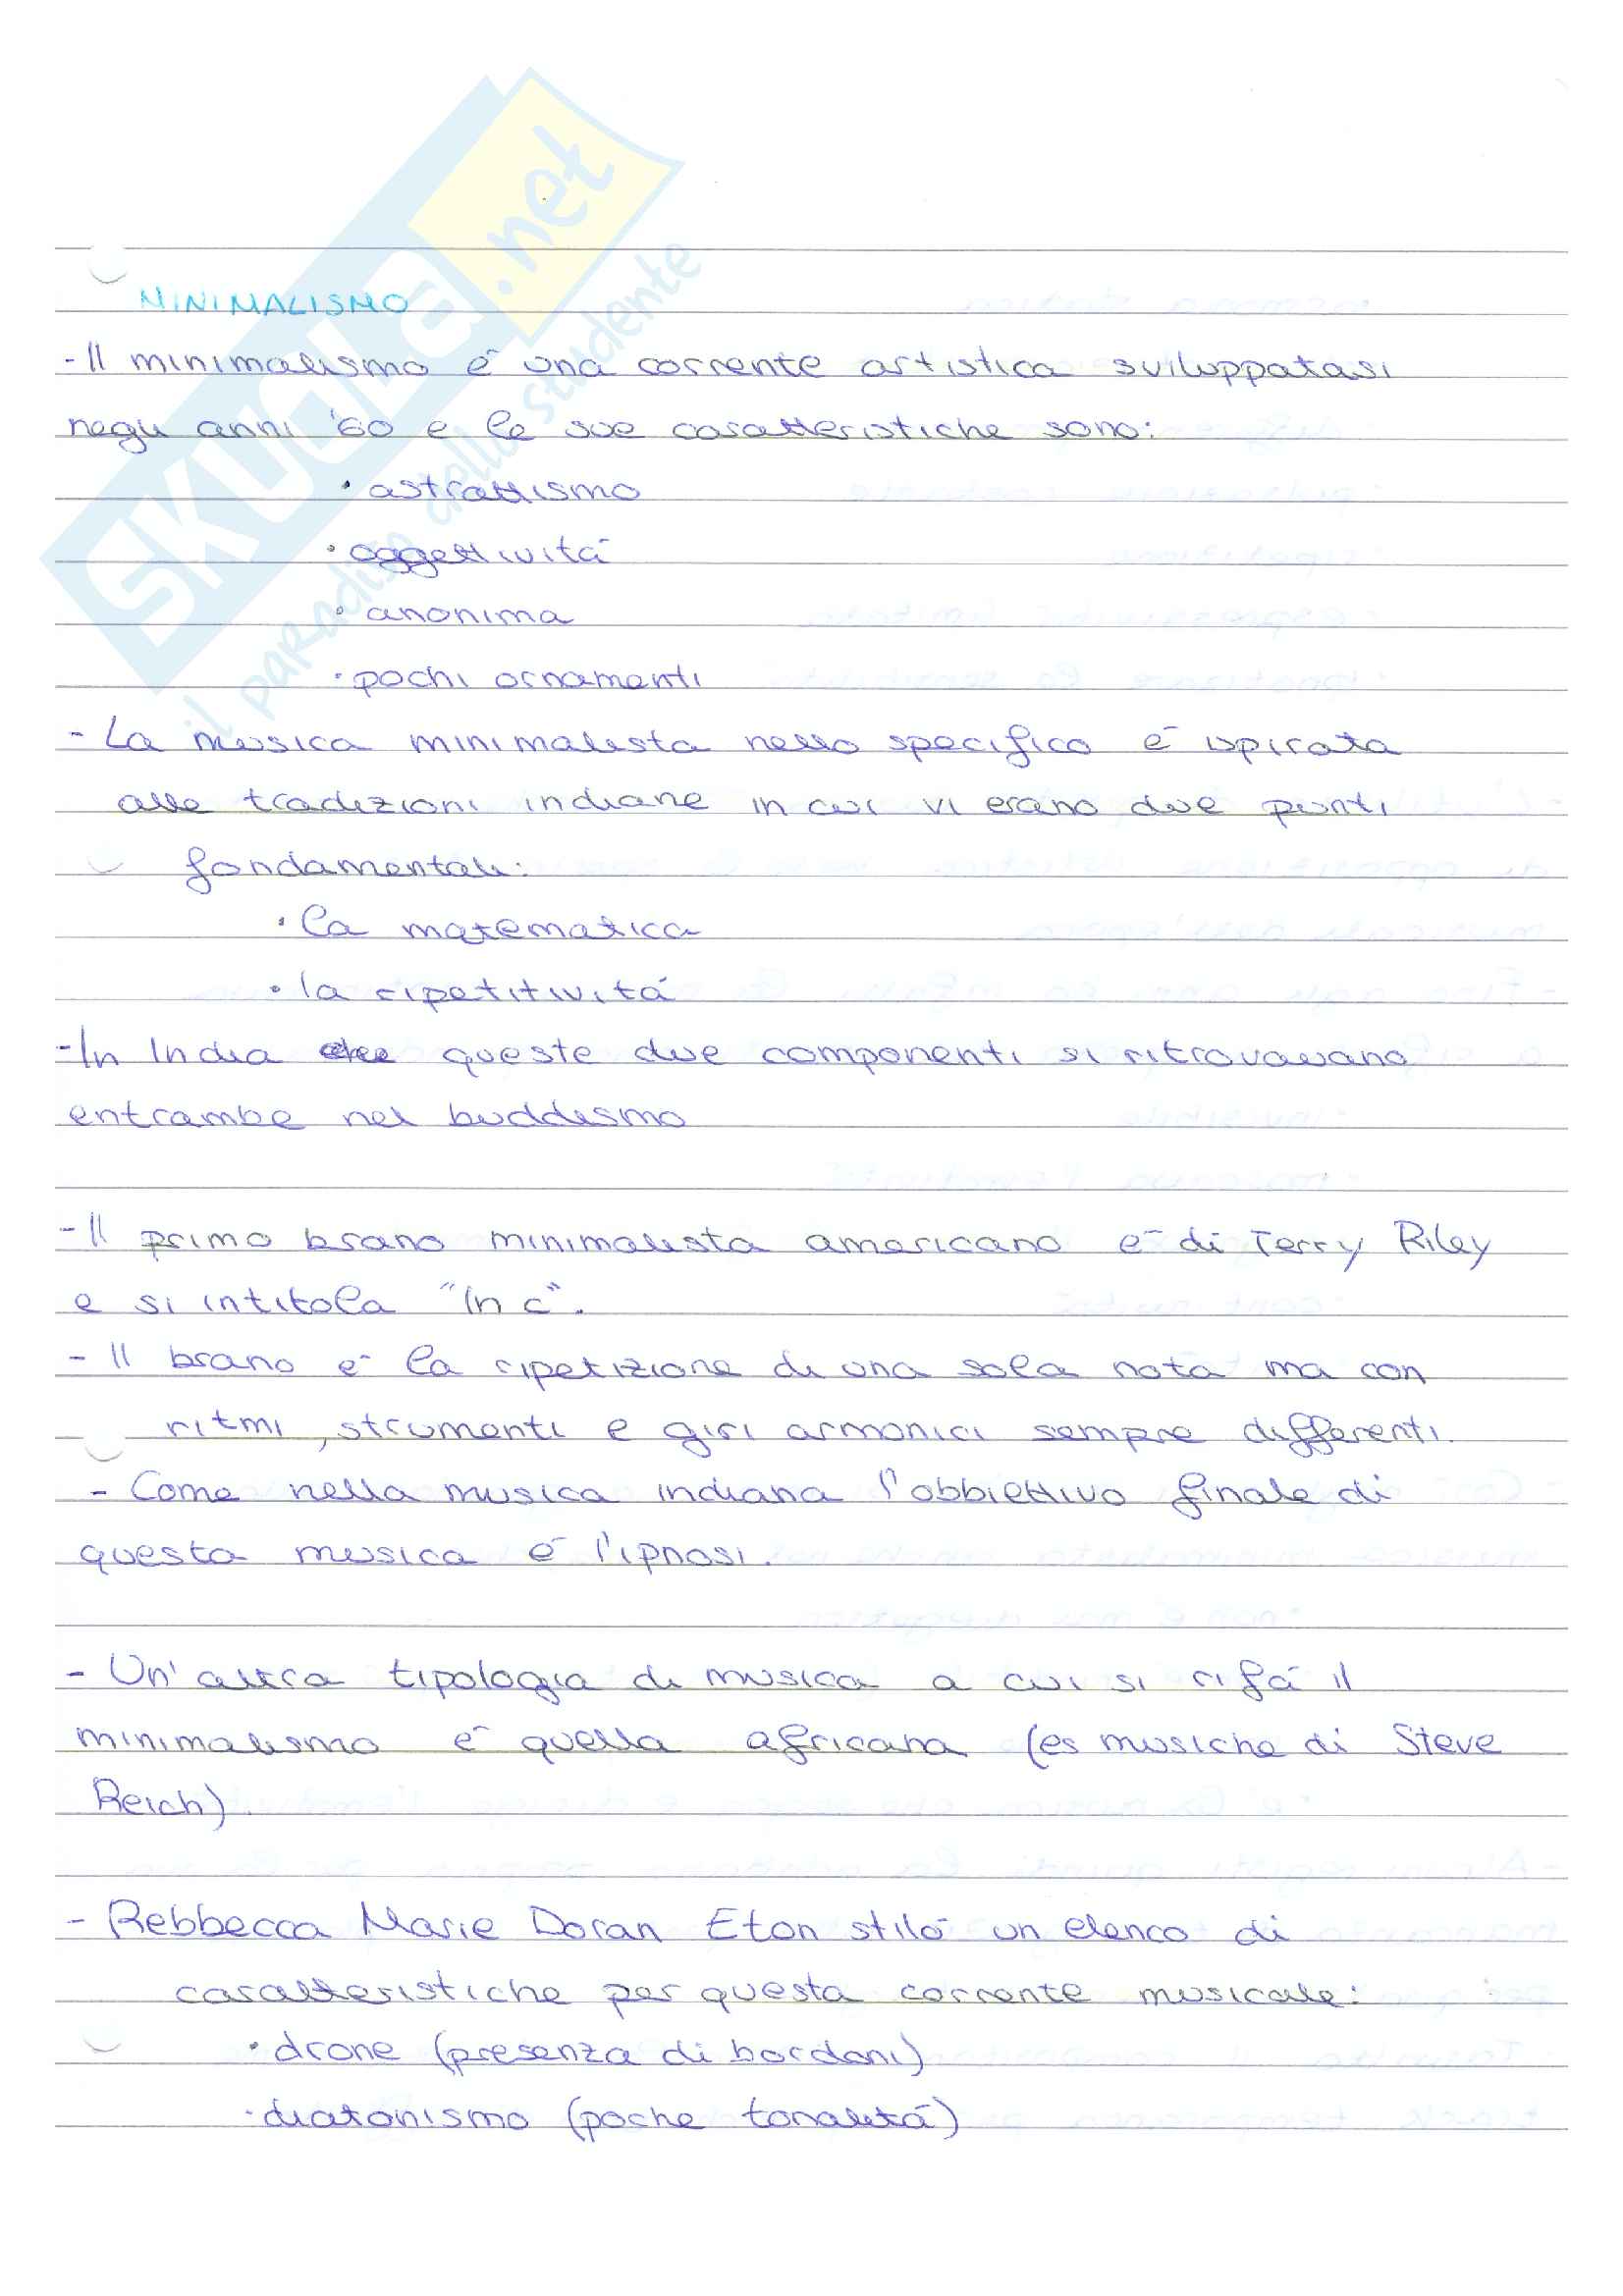 SKUOLA.net
il paradiso dello studente
MINIMALISMO
- Il minimalismo è una corrente artistica sviluppatasi
negli anni '60 e le sue caratteristiche sono:
· astrattismo
· oggettività
· anonima
· pochi ornamenti
- La musica minimalista nello specifico è ispirata
alle tradizioni indiane in cui vi erano due punti
fondamentali:
· la matematica
· la ripetitività
- In India queste due componenti si ritrovavano
entrambe nel buddismo
- Il primo brano minimalista americano è di Terry Riley
e si intitola "In c".
- Il brano è la ripetizione di una sola nota ma con
ritmi, strumenti e giri armonici sempre differenti.
- Come nella musica indiana l'obbiettivo finale di
questa musica è l'ipnosi.
- Un'altra tipologia di musica a cui si rifà il
minimalismo è quella africana (es musiche di Steve
Reich)
- Rebbecca Marie Doran Eton stilò un elenco di
caratteristiche per questa corrente musicale:
· drone (presenza di bordoni)
· diatonismo (poche tonalità)